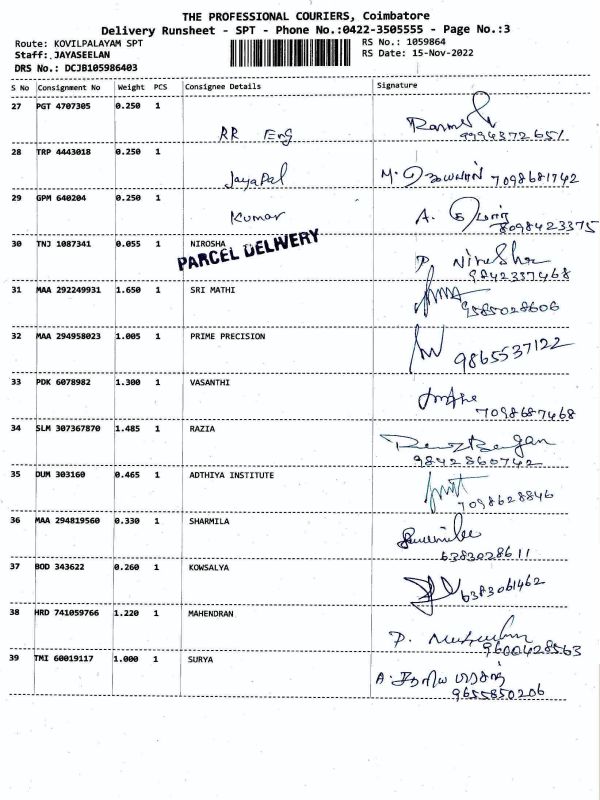 THE PROFESSIONAL COURIERS, Coimbatore
Delivery Runsheet - SPT - Phone No.:0422-3505555 - Page No.:3
Route: KOVILPALAYAM SPT
Staff: JAYASEELAN
DRS No.: DCJB105986403
RS No.: 1059864
RS Date: 15-Nov-2022
S No Consignment No Weight PCS Consignee Details Signature
27 PGT 4707305 0.250 1 RR Eng
9994372651
28 TRP 4443018 0.250 1 Jayapal M. 7098681742
29 GPM 640204 0.250 1 Kumar A.
8098423375
30 TNJ 1087341 0.055 1 NIROSHA P. Nirosha
PARCEL DELIVERY
9842337468
31 MAA 292249931 1.650 1 SRI MATHI
9585028606
32 MAA 294958023 1.005 1 PRIME PRECISION
9865537122
33 PDK 6078982 1.300 1 VASANTHI
7098687468
34 SLM 307367870 1.485 1 RAZIA
9842860742
35 DUM 303160 0.465 1 ADTHIYA INSTITUTE
7098628846
36 MAA 294819560 0.330 1 SHARMILA
6383028611
37 BOD 343622 0.260 1 KOWSALYA
6383061462
38 HRD 741059766 1.220 1 MAHENDRAN P.
9600428563
39 TMI 60019117 1.000 1 SURYA A.
9655850206